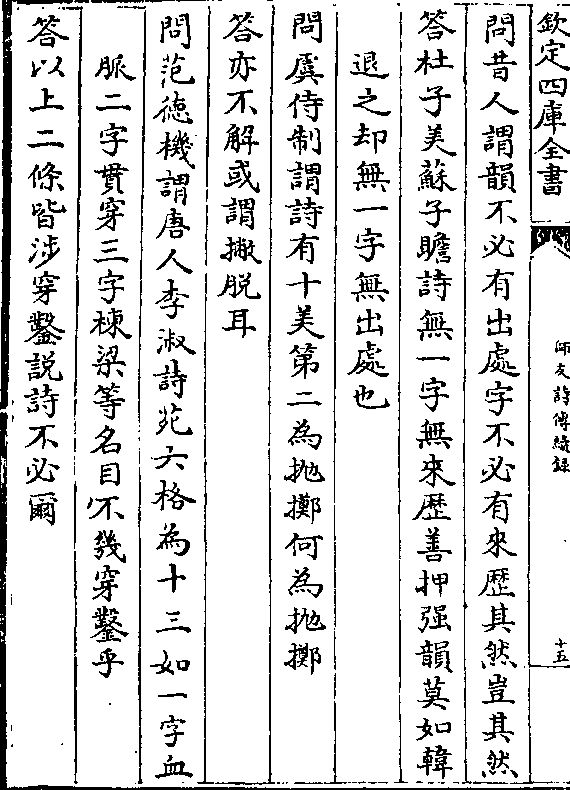 欽定四庫全書
師友詩傳續錄
十五
問昔人謂韻不必有出處字不必有來歷其然豈其然
答杜子美蘇子瞻詩無一字無來歷善押强韻莫如韓
退之却無一字無出處也
問虞侍制謂詩有十美第二為抛擲何為抛擲
答亦不解或謂撇脱耳
問范德機謂唐人李淑詩苑六格為十三如一字血
脈二字貫穿三字棟梁等名目不幾穿鑿乎
答以上二條皆涉穿鑿説詩不必爾